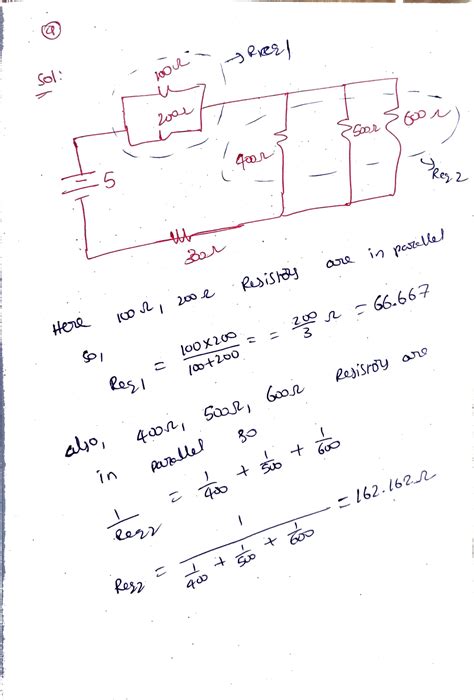 a
Sol:
100Ω
→ Req1
200Ω
5
400Ω
500Ω
600Ω
→ Req2
300Ω
Here 100Ω, 200Ω Resistors are in parallel
So,
Req1 = 100×200 / 100+200 = = 200/3 Ω = 66.667
also, 400Ω, 500Ω, 600Ω Resistors are
in parallel so
1/Req2 = 1/400 + 1/500 + 1/600
Req2 = 1 / (1/400 + 1/500 + 1/600) = 162.162Ω